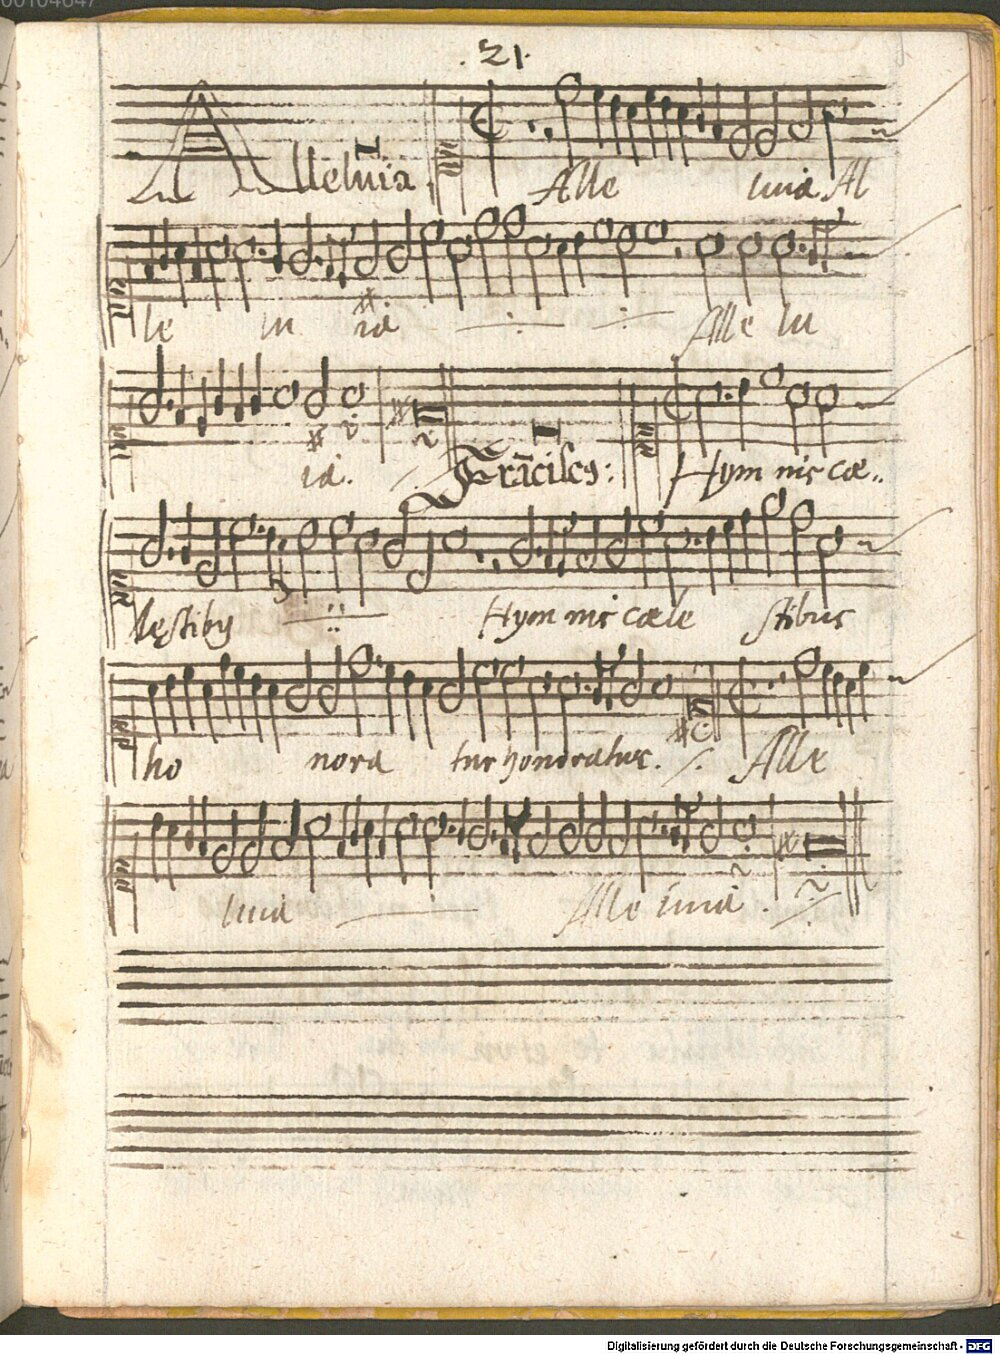 .21.
Alleluia Alle luia. Al
le lu ia Alle lu
ia. Frãcisc9: Hym nis cæ..
lęstib9 Hym nis cæle stibus
ho nora tur honoratur. Alle
luia Alle luia.
Digitalisierung gefördert durch die Deutsche Forschungsgemeinschaft - DFG